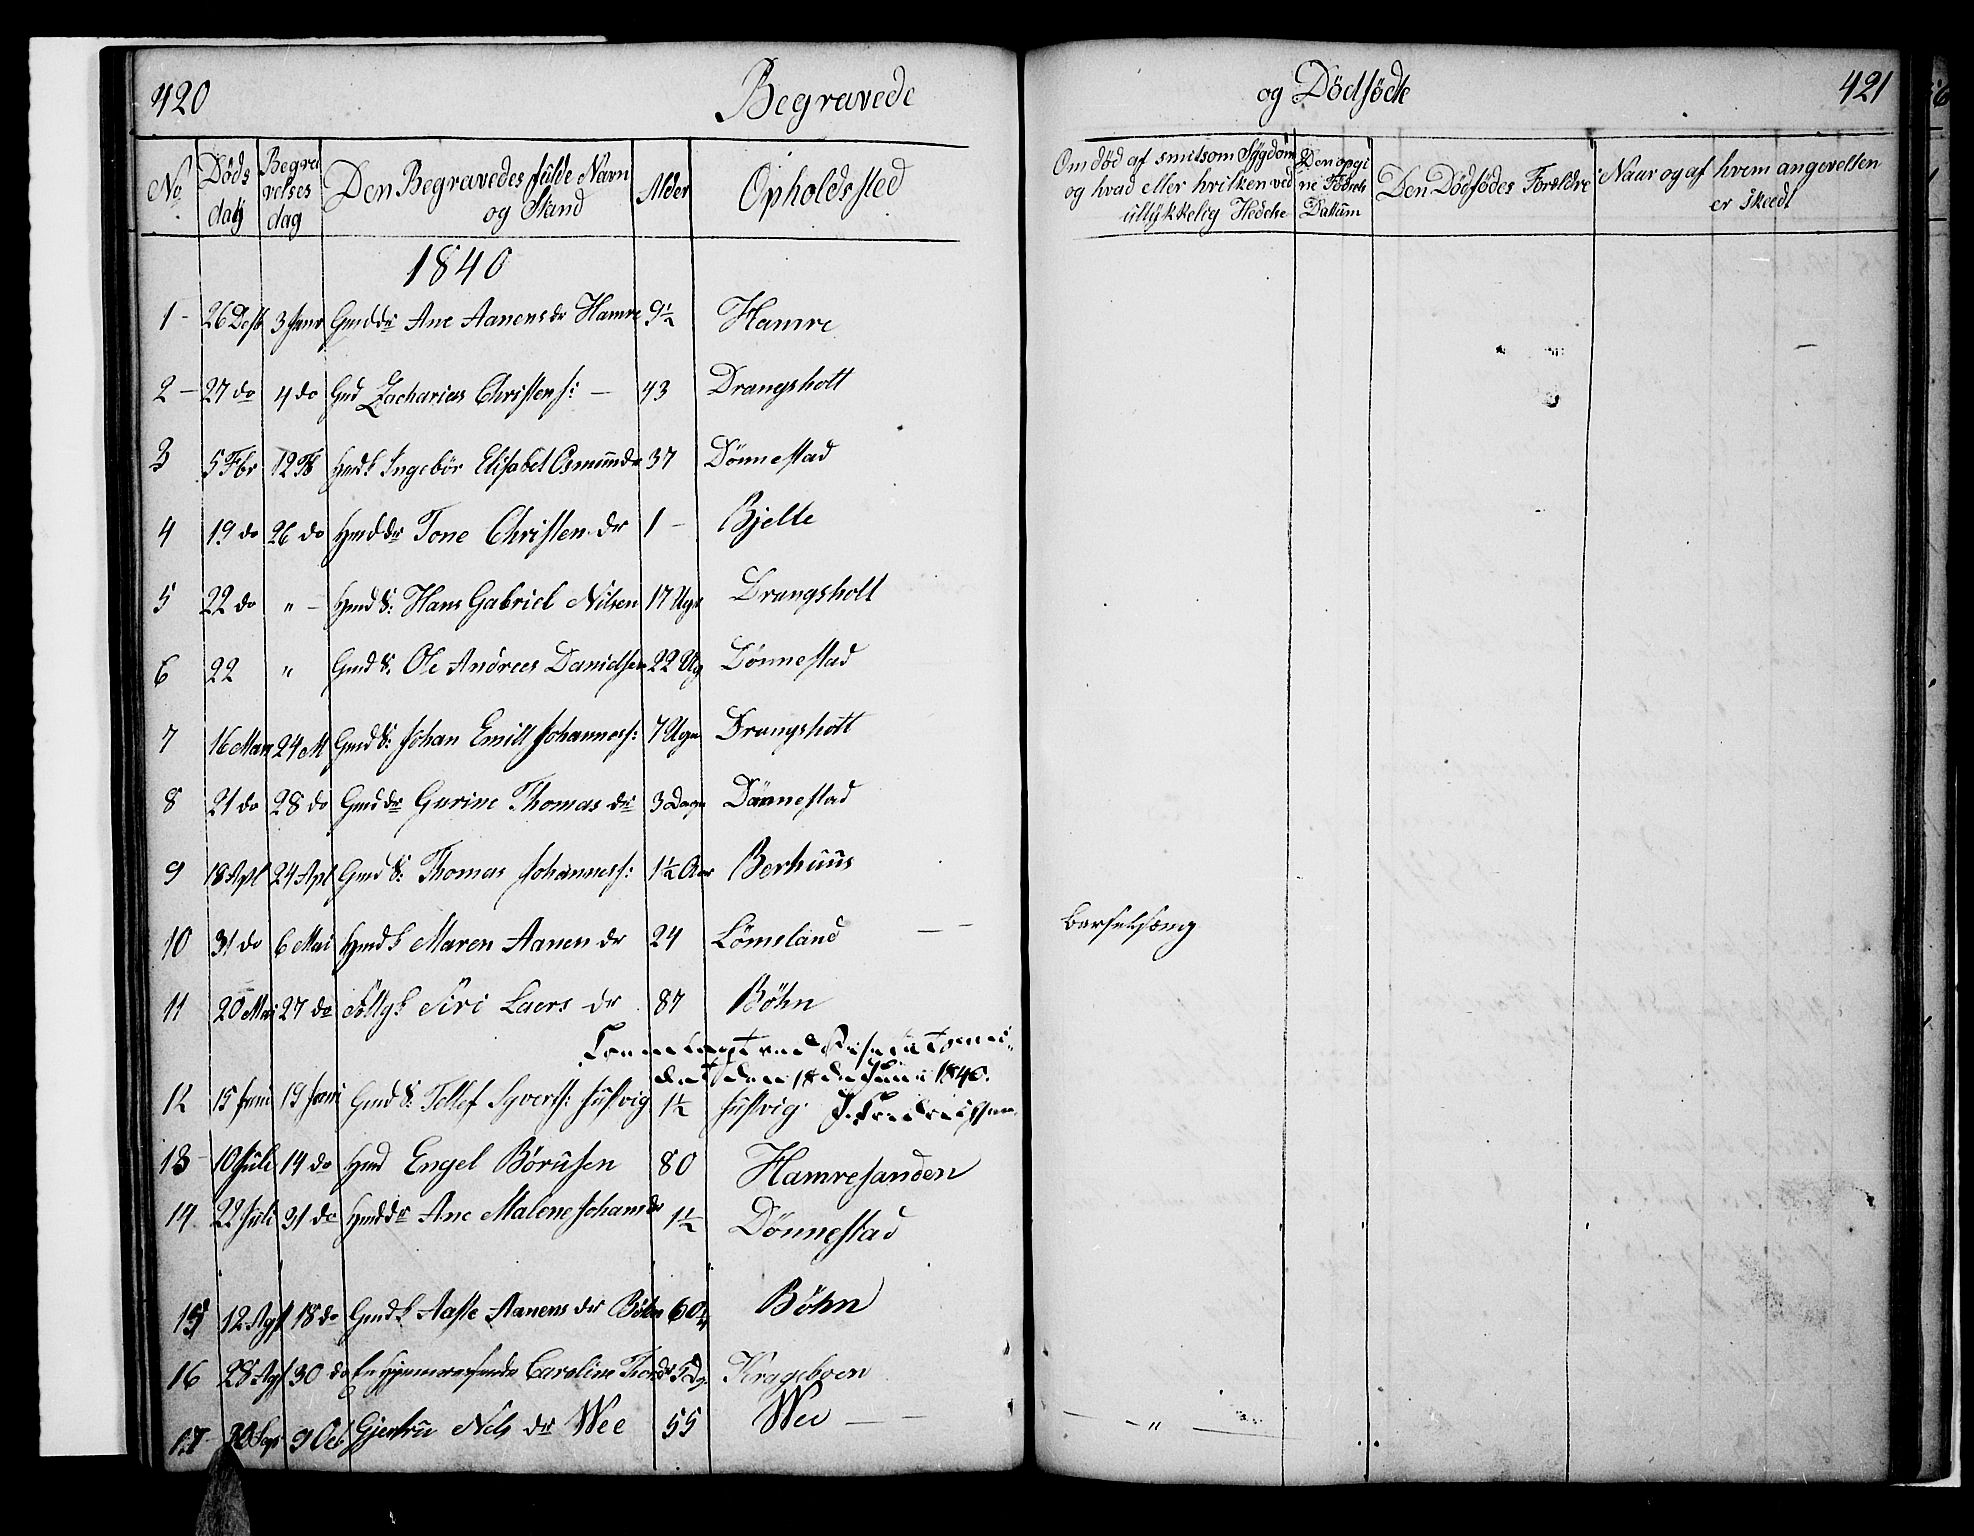 420
Begravede
og Dödföde
421
No
Døds dag
Begravelses dag
Den Begravedes fulde Navn og Stand
Alder
Opholdssted
Om död af smitsom Sÿgdom og hvad eller hvilken ved ullÿkkelig Hedete
Den opgivne Födsels Datum
Den Dödfödes Forældre
Naar og af hvem angevelsen er skeedt
1840
1 - 26 Desb 3 Janr Gmd dr Ane Aanens dr Hamre 9½ Hamre
2 - 27 do 4 do Gmd Zacharias Christens: - 43 Drangsholt
3 5 Fbr 12 Fb Hmd k Ingebör Elisabet Osmunds 37 Dönnestad
4 19 do 26 do Hmd dr Tone Christen dr 1 - Bjelte
5 22 do " - Hmd S: Hans Gabriel Nilsen 17 Uger Drangsholt
6 22 " Gmd S: Ole Andrees Danielsen 22 Ug Dönnestad
7 16 Mars 24 M Gmd S: Johan Emill Johanness: 7 Uger Drangsholt
8 21 do 28 do Gmd dr Gurine Thomas dr 3 Dage Dönnestad
9 18 Apl 24 Apl Gmd S: Thomas Johanness: 1½ Aar Berhuus
10 31 do 6 Mai Hmd k Maren Aanen dr 24 Lömsland - - Barselsæng
11 20 Mai 27 do Siri Laers dr 87 Böhn
Fremlagt ved
den 18de Juni 1840.
12 15 Juni 19 Juni Gmd S: Tellef Syverts: Justvig 1½ Justvig J. Fredrichsen
13 10 Juli 14 do Hmd Engel Börusen 80 Hamresanden
14 22 Juli 31 do Hmd dr Ane Malene Johans dr 1½ Dönnestad
15 12 Agst 18 do Gmd k Aaste Aanens dr Böhn 60¼ Böhn
16 28 Agt 30 do Caroline 5 Dg. Krageboen
17 30 Sep 9 Oct Gjertru Nels dr Wee 55 Wee - - - - " -